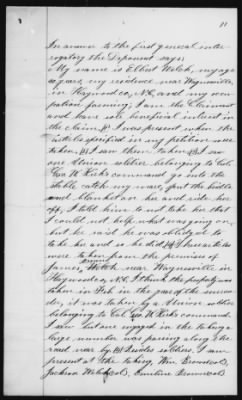 11
In answer to the first general inter-
rogatory the Deponent says:
My name is Elbert Welch, my age
years, my residence near Waynesville
in Haywood co, N.C, and my occu-
pation farming; I am the Claimant
and have sole beneficial interest in
the claim. I was present when the
articles specified in my petition were
taken. I saw them taken. I saw
one Union soldier belonging to Col.
Geo W. Kirk's command go into the
stable catch my mare, put the bridle
and blanket on her and ride her
off, I told him to not take her that
I could not help what was going on,
but he said he was obliged to
take her and so he did. These articles
were taken from the premises of
James near Waynesville in
Haywood co, N.C. I think the property was
taken in Feb in the year of the surren-
der, it was taken by a Union soldier
belonging to Col Geo W. Kirk's command
I saw but one engaged in the taking a
large number was passing along the
road near by. Besides soldiers, I saw
present at the taking, Wm
Jackson Welch, Emeline